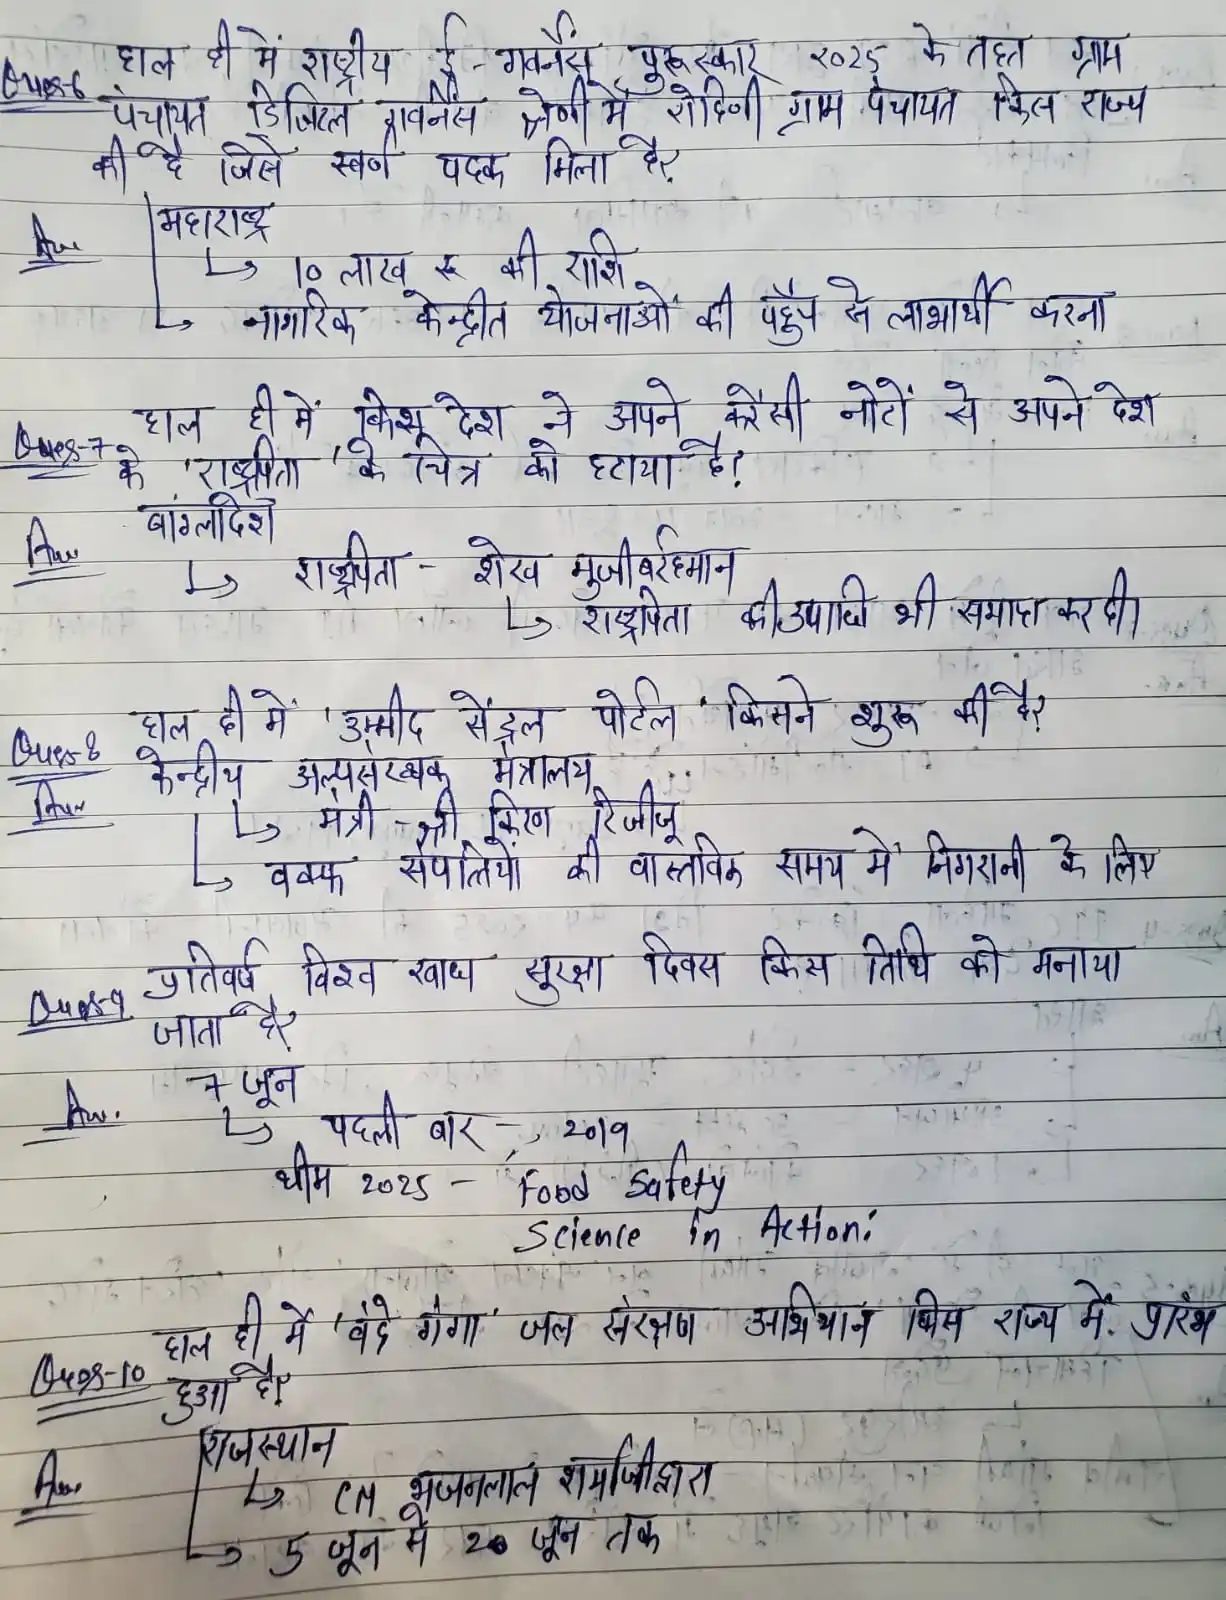 Ques-6 हाल ही में राष्ट्रीय ई-गवर्नेंस पुरूस्कार 2025 के तहत ग्राम
पंचायत डिजिटल गवर्नेंस श्रेणी में रोहिणी ग्राम पंचायत किस राज्य
की है जिसे स्वर्ण पदक मिला है?
Ans महाराष्ट्र
↳ 10 लाख रू की राशि
↳ नागरिक केन्द्रीत योजनाओं की पहुँच से लाभार्थी करना
Ques-7 हाल ही में किस देश ने अपने करेंसी नोटों से अपने देश
के 'राष्ट्रपिता' के चित्र को हटाया है?
Ans बांग्लादेश
↳ राष्ट्रपिता - शेख मुजीबर्रहमान
↳ राष्ट्रपिता की उपाधि भी समाप्त कर दी।
Ques-8 हाल ही में 'उम्मीद सेंट्रल पोर्टल' किसने शुरू की है?
Ans केन्द्रीय अल्पसंख्यक मंत्रालय
↳ मंत्री - श्री किरण रिजीजू
↳ वक्फ संपत्तियों की वास्तविक समय में निगरानी के लिए
Ques-9 प्रतिवर्ष विश्व खाद्य सुरक्षा दिवस किस तिथि को मनाया
जाता है?
7 जून
Ans. ↳ पहली बार - 2019
थीम 2025 - Food Safety
Science in Action:
Ques-10 हाल ही में 'वंदे गंगा' जल संरक्षण अभियान किस राज्य में प्रारंभ
हुआ है?
Ans राजस्थान
↳ CM भजनलाल शर्मा जी द्वारा
↳ 5 जून में 20 जून तक